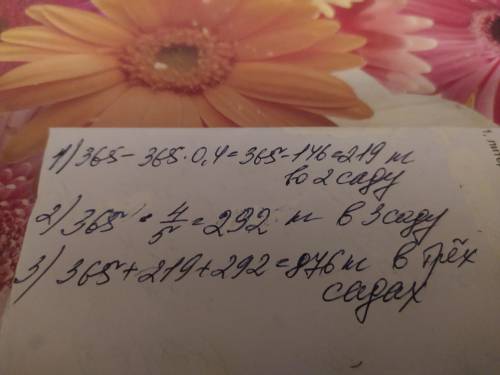 1) 365 - 365 · 0,4 = 365 - 146 = 219 т
во 2 саду
2) 365 · 4/5 = 292 т в 3 саду
3) 365 + 219 + 292 = 876 т в трёх
садах